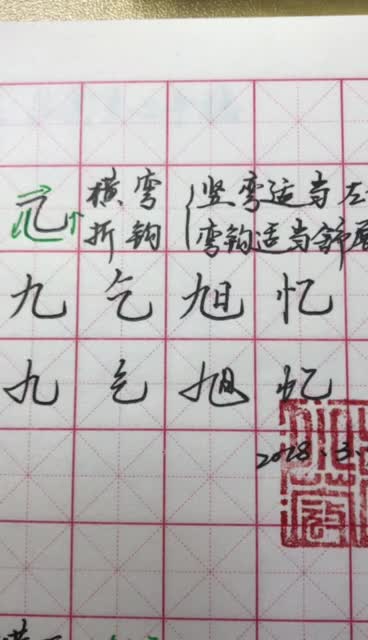 乙 横弯 竖弯适当左
折钩 弯钩适当舒展
九 乞 旭 忆
九 乞 旭 忆